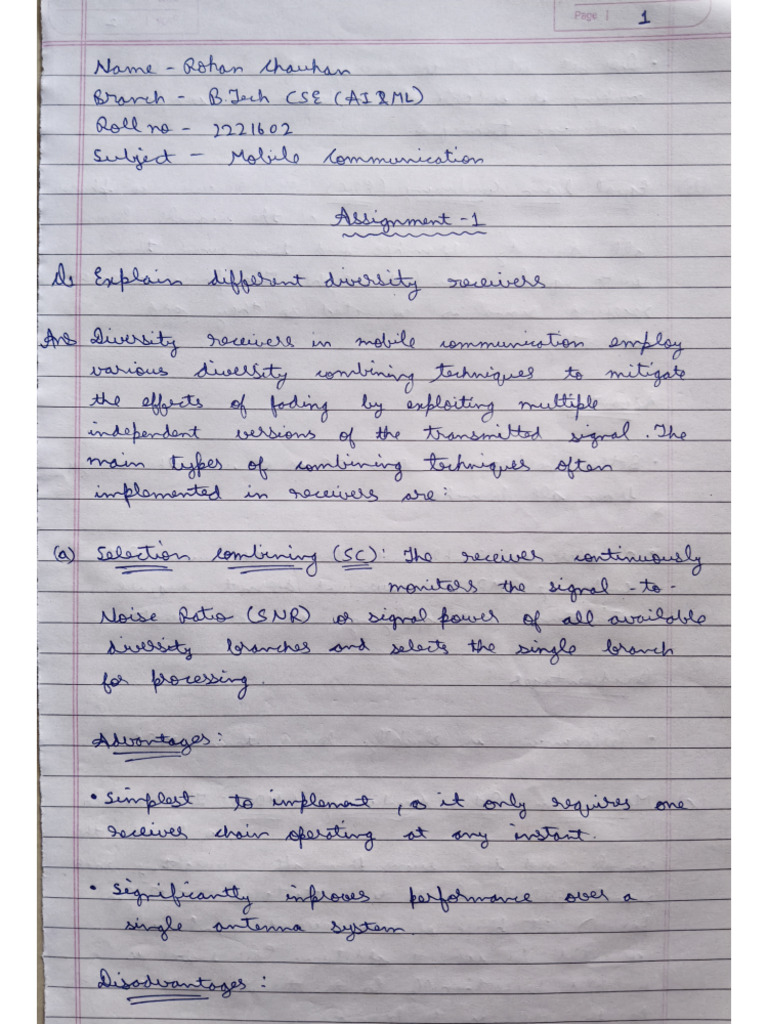 Page | 1
Name - Rohan Chauhan
Branch - B.Tech CSE (AI & ML)
Roll no - 2221602
Subject - Mobile Communication
Assignment - 1
Q. Explain different diversity receivers
Ans Diversity receivers in mobile communication employ
various diversity combining techniques to mitigate
the effects of fading by exploiting multiple
independent versions of the transmitted signal. The
main types of combining techniques often
implemented in receivers are:
(a) Selection Combining (SC): The receiver continuously
monitors the signal -to-
Noise Ratio (SNR) or signal power of all available
diversity branches and selects the single branch
for processing.
Advantages:
• Simplest to implement, as it only requires one
receiver chain operating at any instant.
• Significantly improves performance over a
single antenna system.
Disadvantages: